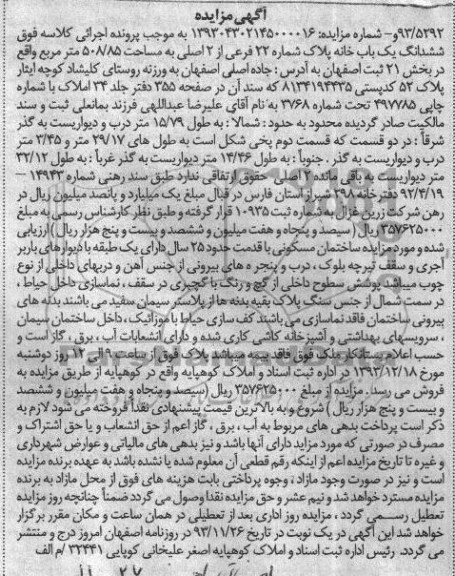 آگهی مزایده
۹۳/۵۲۹۲و- شماره مزایده: ۱۳۹۳۰۴۳۰۲۱۴۵۰۰۰۰۱۶ به موجب پرونده اجرائی کلاسه فوق
ششدانگ یک باب خانه پلاک شماره ۲۲ فرعی از ۲ اصلی به مساحت ۵۰۸/۸۵ متر مربع واقع
در بخش ۲۱ ثبت اصفهان به آدرس : جاده اصلی اصفهان به ورزنه روستای کلیشاد کوچه ایثار
پلاک ۵۲ کدپستی ۸۱۳۴۱۹۴۴۳۵ که سند آن در صفحه ۳۵۵ دفتر جلد ۳۴ املاک با شماره
چاپی ۴۹۷۷۸۵ تحت شماره ۳۷۶۸ به نام آقای علیرضا عبداللهی فرزند یمانعلی ثبت و سند
مالکیت صادر گردیده محدود به حدود : شمالا : به طول ۱۵/۷۹ متر درب و دیواریست به گذر
شرقاً : در دو قسمت که قسمت دوم پخی شکل است به طول های ۲۹/۱۷ متر و ۳/۴۵ متر
درب و دیواریست به گذر . جنوباً : به طول ۱۴/۴۶ متر دیواریست به گذر غرباً : به طول ۳۲/۱۲
متر دیواریست به باقی مانده ۲ اصلی حقوق ارتفاقی ندارد طبق سند رهنی شماره ۱۴۹۴۳ –
۹۲/۴/۱۹ دفترخانه ۲۷۸ شیراز استان فارس در قبال مبلغ یک میلیارد و پانصد میلیون ریال در
رهن شرکت زرین غزال به شماره ثبت ۱۰۹۳۵ قرار گرفته و طبق نظر کارشناس رسمی به مبلغ
۳۵۷۶۲۵۰۰۰ ریال ( سیصد و پنجاه و هفت میلیون و ششصد و بیست و پنج هزار ریال ) ارزیابی
شده و مورد مزایده ساختمان مسکونی با قدمت حدود ۲۵ سال دارای یک طبقه با دیوارهای باربر
آجری و سقف تیرچه بلوک ، درب و پنجره های بیرونی از جنس آهن و دربهای داخلی از نوع
چوب میباشد پوشش سطوح داخلی از گچ و رنگ با گچبری در سقف ، نماسازی داخل حیاط ،
در سمت شمال از جنس سنگ پلاک بقیه بدنه ها از پلاستر سیمان سفید می باشند بدنه های
بیرونی ساختمان فاقد نماسازی می باشند کف سازی حیاط با موزائیک ، داخل ساختمان سیمان
، سرویسهای بهداشتی و آشپزخانه کاشی کاری شده و دارای انشعابات آب ، برق ، گاز است و
حسب اعلام بستانکار ملک فوق فاقد بیمه میباشد پلاک فوق از ساعت ۹ الی ۱۲ روز دوشنبه
مورخ ۱۳۹۳/۱۲/۱۸ در اداره ثبت اسناد و املاک کوهپایه واقع در کوهپایه از طریق مزایده به
فروش می رسد . مزایده از مبلغ ۳۵۷۶۲۵۰۰۰ ریال (سیصد و پنجاه و هفت میلیون و ششصد
و بیست و پنج هزار ریال ) شروع و به بالاترین قیمت پیشنهادی نقداً فروخته می شود لازم به
ذکر است پرداخت بدهی های مربوط به آب ، برق ، گاز اعم از حق انشعاب و یا حق اشتراک و
مصرف در صورتی که مورد مزاید دارای آنها باشد و نیز بدهی های مالیاتی و عوارض شهرداری
و غیره تا تاریخ مزایده اعم از اینکه رقم قطعی آن معلوم شده یا نشده باشد به عهده برنده مزایده
است و نیز در صورت وجود مازاد ، وجوه پرداختی بابت هزینه های فوق از محل مازاد به برنده
مزایده مسترد خواهد شد و نیم عشر و حق مزایده نقدا وصول می گردد ضمناً چنانچه روز مزایده
تعطیل رسمی گردد ، مزایده روز اداری بعد از تعطیلی در همان ساعت و مکان مقرر برگزار
خواهد شد این آگهی در یک نوبت در تاریخ ۹۳/۱۱/۲۶ در روزنامه اصفهان امروز درج و منتشر
می گردد. رئیس اداره ثبت اسناد و املاک کوهپایه اصغر علیخانی کوپایی ۳۲۴۴۱ /م الف